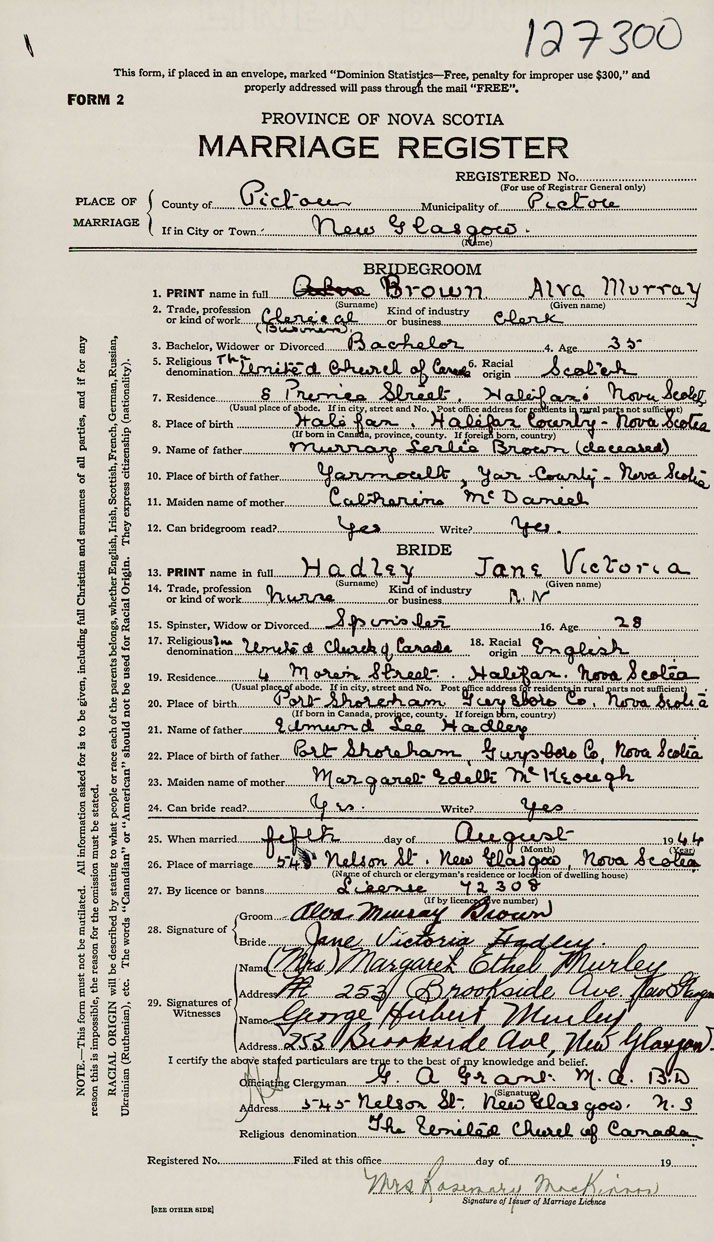 127300
This form, if placed in an envelope, marked "Dominion Statistics—Free, penalty for improper use $300," and
properly addressed will pass through the mail "FREE".
FORM 2
PROVINCE OF NOVA SCOTIA
MARRIAGE REGISTER
REGISTERED No.
(For use of Registrar General only)
PLACE OF MARRIAGE
County of Pictou Municipality of Pictou
If in City or Town New Glasgow.
(Name)
BRIDEGROOM
1. PRINT name in full Brown Alva Murray
(Surname) (Given name)
2. Trade, profession or kind of work Clerical (Business) Kind of industry or business Clerk
3. Bachelor, Widower or Divorced Bachelor 4. Age 35
5. Religious denomination The United Church of Canada 6. Racial origin Scotch
7. Residence 8 Street, Halifax, Nova Scotia
(Usual place of abode. If in city, street and No. Post office address for residents in rural parts not sufficient)
8. Place of birth Halifax, Halifax County - Nova Scotia
(If born in Canada, province, county. If foreign born, country)
9. Name of father Murray Leslie Brown (deceased)
10. Place of birth of father Yarmouth, Yar County - Nova Scotia
11. Maiden name of mother Catharine McDaniel
12. Can bridegroom read? Yes Write? Yes.
BRIDE
13. PRINT name in full Hadley Jane Victoria
(Surname) (Given name)
14. Trade, profession or kind of work Nurse Kind of industry or business R.N
15. Spinster, Widow or Divorced Spinster 16. Age 28
17. Religious denomination United Church of Canada 18. Racial origin English
19. Residence 4 Morin Street. Halifax. Nova Scotia
(Usual place of abode. If in city, street and No. Post office address for residents in rural parts not sufficient)
20. Place of birth Port Shoreham Guysboro Co, Nova Scotia
(If born in Canada, province, county. If foreign born, country)
21. Name of father Edmund Lee Hadley
22. Place of birth of father Port Shoreham, Guysboro Co, Nova Scotia
23. Maiden name of mother Margaret Edith McKeough
24. Can bride read? Yes. Write? Yes
25. When married fifth day of August 1944
(Month) (Year)
26. Place of marriage 545 Nelson St. New Glasgow, Nova Scotia
(Name of church or clergyman's residence or location of dwelling house)
27. By licence or banns License 72308
(If by licence, give number)
28. Signature of
Groom Alva Murray Brown
Bride Jane Victoria Hadley.
29. Signatures of Witnesses
Name (Mrs) Margaret Ethel Murley
Address 253 Brookside Ave, New Glasgow
Name George Herbert Murley
Address 253 Brookside Ave, New Glasgow.
I certify the above stated particulars are true to the best of my knowledge and belief.
Officiating Clergyman G. A Grant. M.A. B.D
(Signature)
Address 545 Nelson St. New Glasgow. N.S
Religious denomination The United Church of Canada
Registered No. Filed at this office day of 19
Mrs Rosemary MacKinnon
Signature of Issuer of Marriage Licence
[SEE OTHER SIDE]
NOTE.—This form must not be mutilated. All information asked for is to be given, including full Christian and surnames of all parties, and if for any
reason this is impossible, the reason for the omission must be stated.
RACIAL ORIGIN will be described by stating to what people or race each of the parents belongs, whether English, Irish, Scottish, French, German, Russian,
Ukrainian (Ruthenian), etc. The words "Canadian" or "American" should not be used for Racial Origin. They express citizenship (nationality).